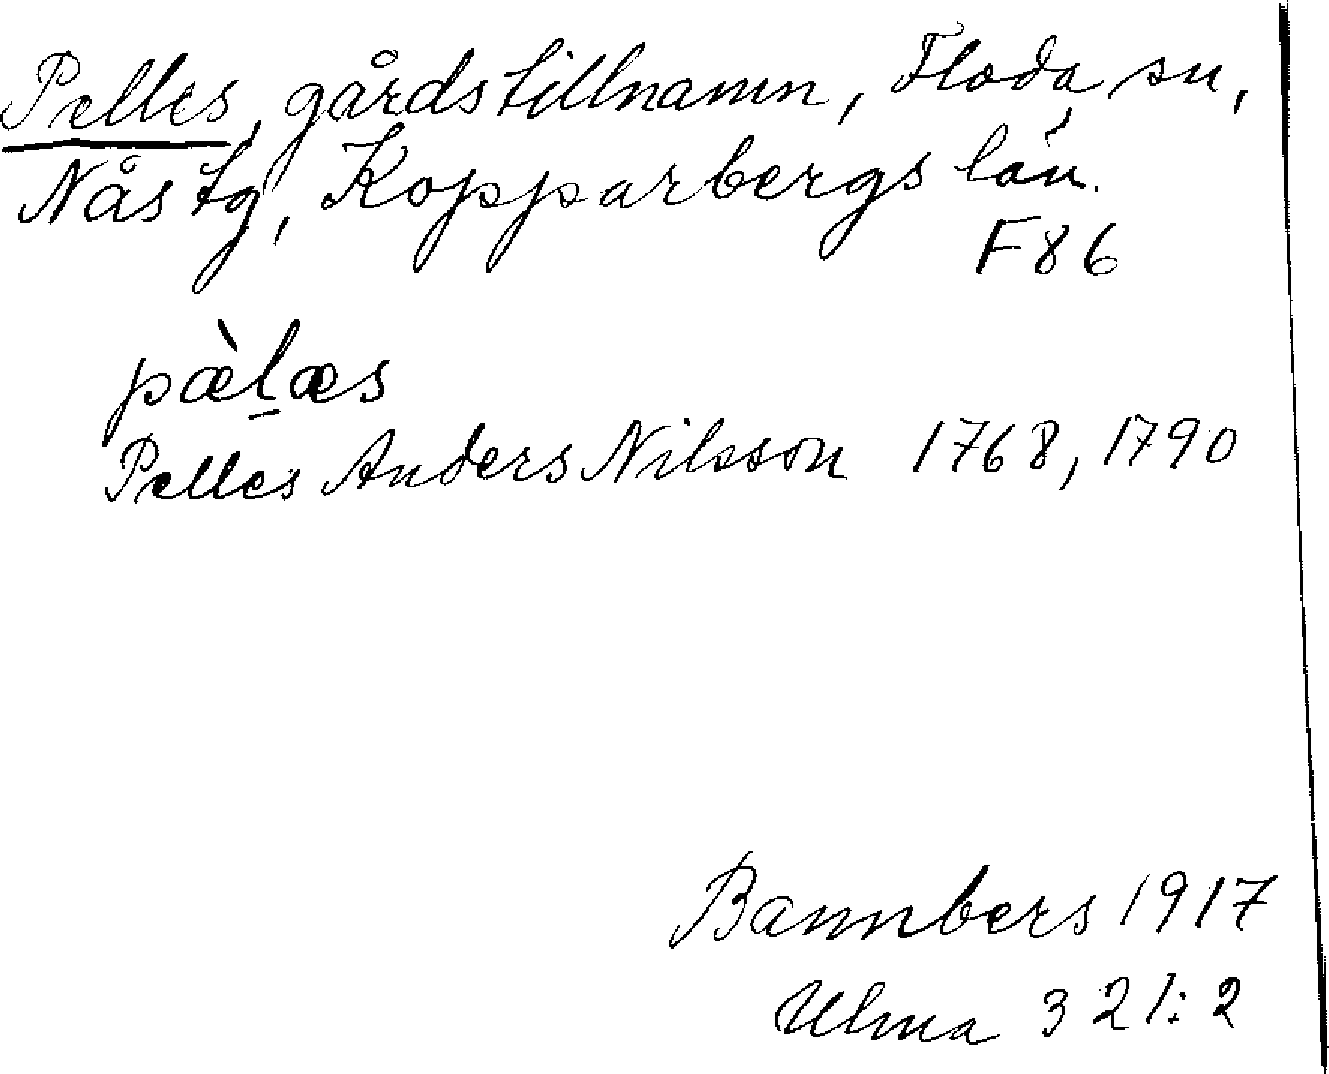 Pelles, gårdstillnamn, Floda sn,
Nås tg, Kopparbergs län.
F 86
pæ̀l̠æs
Pelles Anders Nilsson 1768, 1790
Bannbers 1917
Ulma 321:2